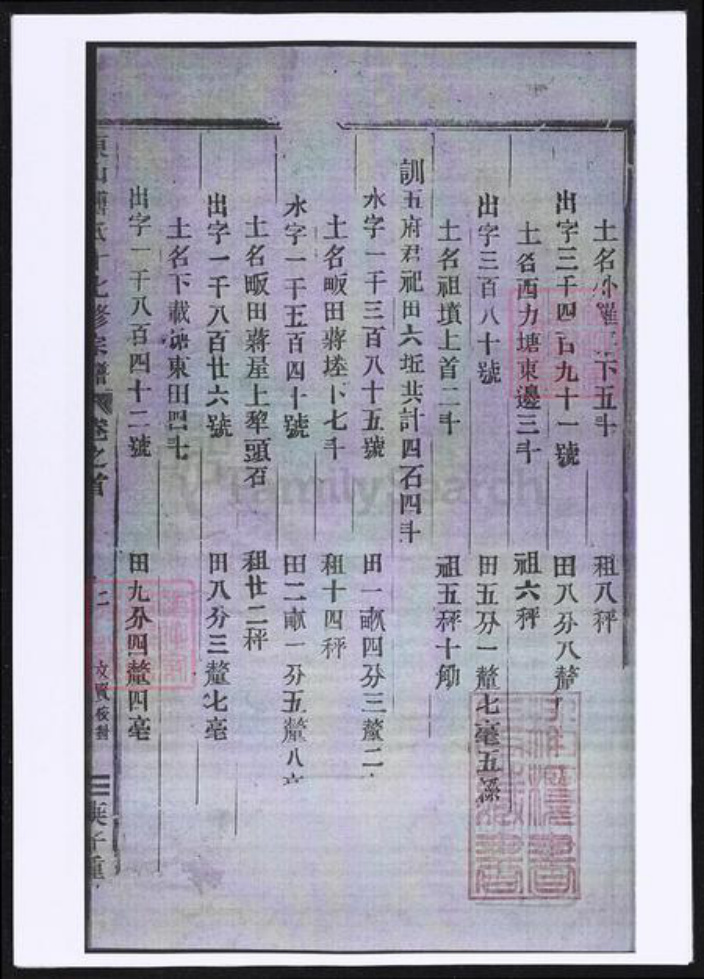 土名 下五斗 租八秤
出字三千四百九十一號 田八分八釐
土名西力塘東邊三斗 祖六秤
出字三百八十號 田五分一釐七毫五
土名祖墳上首二斗 祖五秤十觔
訓五府君祀田六坵共計四石四斗
水字一千三百八十五號 田一畝四分三釐二
土名畈田蔣塍卜七斗 租十四秤
水字一千五百四十號 田二畝一分五釐八
土名畈田蔣屋上犂頭石 租廿二秤
出字一千八百廿六號 田八分三釐七毫
土名下截 東田四斗
出字一千八百四十二號 田九分四釐四毫
十七修宗譜 卷之首
FamilySearch